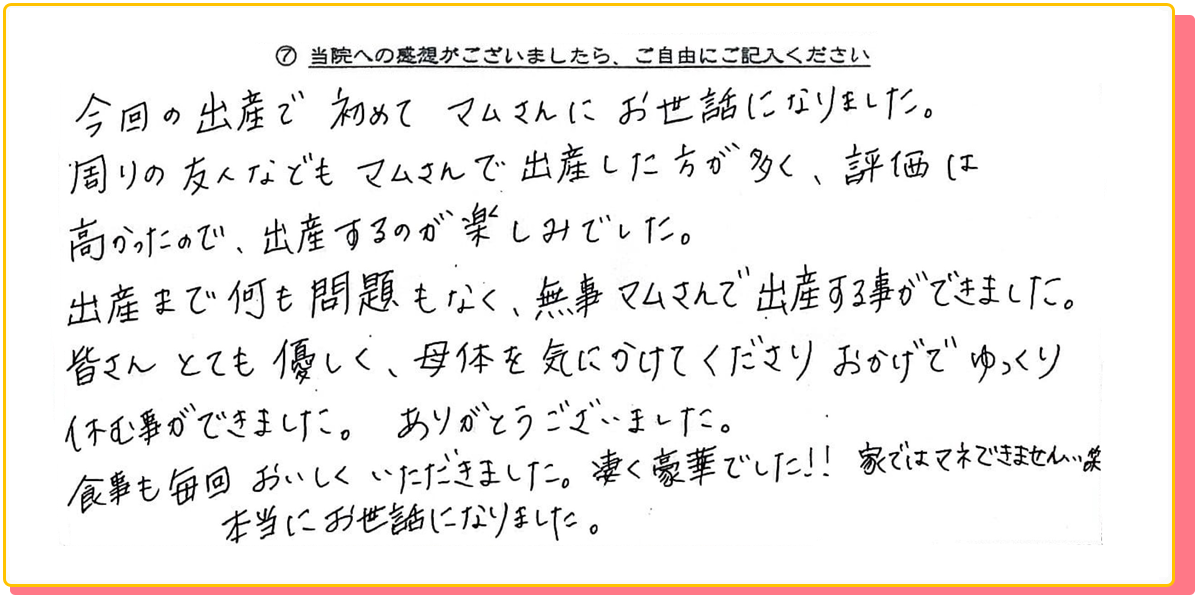 ⑦ 当院への感想がございましたら、ご自由にご記入ください
今回の出産で 初めて マムさんに お世話になりました。
周りの友人なども マムさんで 出産した方が多く、評価は
高かったので、出産するのが楽しみでした。
出産まで何も問題もなく、無事マムさんで出産する事ができました。
皆さん とても 優しく、母体を気にかけてくださり おかげで ゆっくり
休む事ができました。 ありがとうございました。
食事も毎回 おいしく いただきました。凄く豪華でした!! 家ではマネできません…笑
本当にお世話になりました。